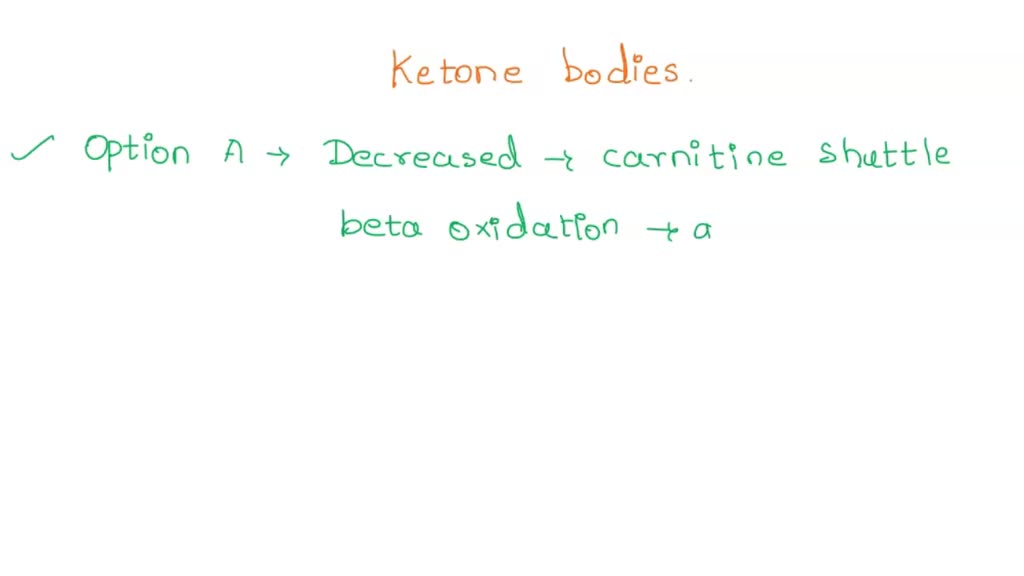 Ketone bodies.
✓ Option A → Decreased → carnitine shuttle
beta oxidation → a